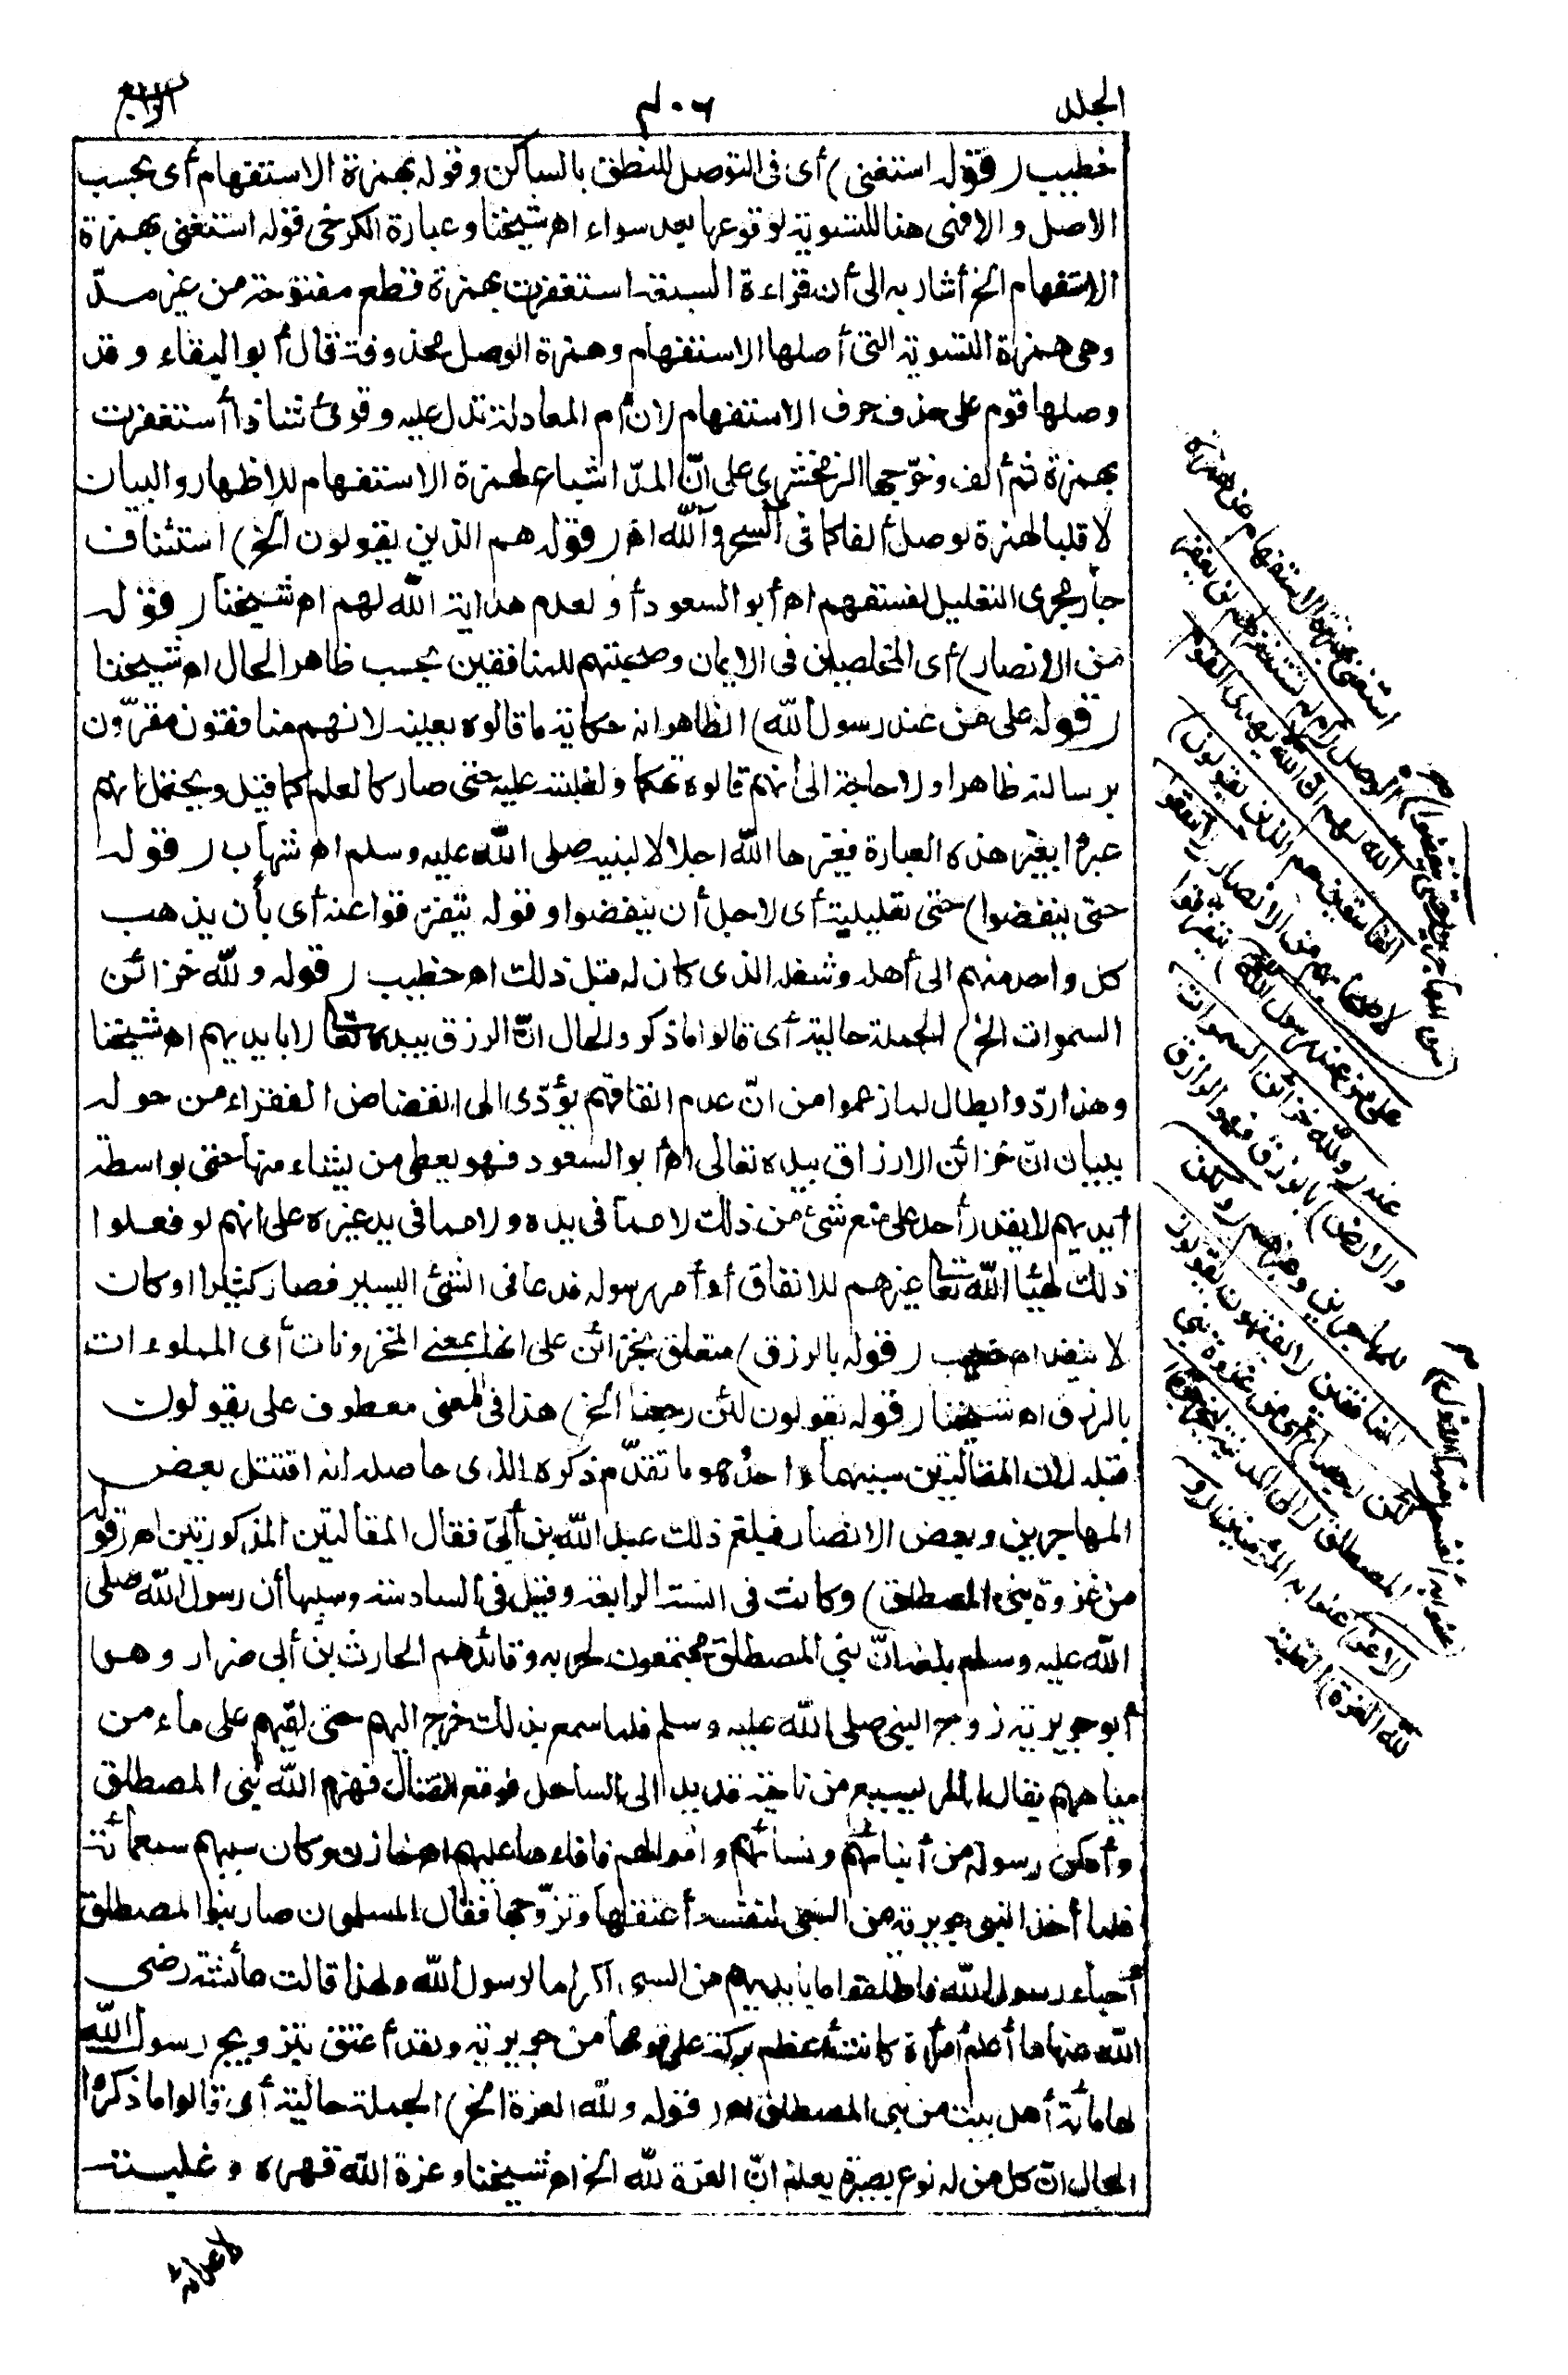 الجلد
٤٠٦
الرابع
خطيب (قوله استغنى) أى فى التوصل للنطق بالساكن وقوله بهمزة الاستفهام أى بحسب
الاصل والافهى هنا للتسوية لوقوعها بعد سواء اه شيخنا وعبارة الكرخى قوله استغنى بهمزة
الاستفهام الخ أشار به الى أن قراءة السبعة استغفرت بهمزة قطع مفتوحة من غير مدّ
وهى همزة التسوية التى أصلها الاستفهام وهمزة الوصل محذوفة قال أبو البقاء وقد
وصلها قوم على حذف حرف الاستفهام لان أم المعادلة تدل عليه وقرئ شاذا آستغفرت
بهمزة ثم ألف وخرّجها الزمخشرى على انّ المدّ اشباع لهمزة الاستفهام للاظهار والبيان
لا قلبا لهمزة الوصل ألفا كما فى آلسحر وآلله اه (قوله هم الذين يقولون الخ) استئناف
جار مجرى التعليل لفسقهم اه أبو السعود أو لعدم هداية الله لهم اه شيخنا (قوله
من الانصار) أى المخلصين فى الايمان وصحبتهم للمنافقين بحسب ظاهر الحال اه شيخنا
(قوله على من عند رسول الله) الظاهر انه حكاية ما قالوه بعينه لانهم منافقون مقرّون
برسالته ظاهرا ولا حاجة الى أنهم قالوه تهكما ولغلبته عليه حتى صار كالعلم كما قيل ويحتمل انهم
عبروا بغير هذه العبارة فغيرها الله اجلالا لنبيه صلى الله عليه وسلم اه شهاب (قوله
حتى ينفضوا) حتى تعليلية أى لاجل أن ينفضوا وقوله يتفرّقوا عنه أى بأن يذهب
كل واحد منهم الى أهله وشغله الذى كان له قبل ذلك اه خطيب (قوله ولله خزائن
السموات الخ) الجملة حالية أى قالوا ما ذكر والحال انّ الرزق بيده تعالى لا بايديهم اه شيخنا
وهذا ردّ وابطال لما زعموا من انّ عدم انفاقهم يؤدّى الى انفضاض الفقراء من حوله
ببيان انّ خزائن الارزاق بيده تعالى اه أبو السعود فهو يعطى من يشاء منها حتى بواسطة
أيديهم لا يقدر أحد على منع شئ من ذلك لا مما فى يده ولا مما فى يد غيره على انهم لو فعلوا
ذلك لهيّأ الله تعالى غيرهم للانفاق أو أمر رسوله فدعا فى الشئ اليسير فصار كثيرا أو كان
لا ينفد اه خطيب (قوله بالرزق) متعلق بخزائن على انها بمعنى المخزونات أى المملوءات
بالرزق اه شيخنا (قوله يقولون لئن رجعنا الخ) هذا فى المعنى معطوف على يقولون
قبله لان المقالتين سببهما واحد وهو ما تقدّم ذكره الذى حاصله انه اقتتل بعض
المهاجرين وبعض الانصار فبلغ ذلك عبد الله بن أبىّ فقال المقالتين المذكورتين اه (قوله
من غزوة بنى المصطلق) وكانت فى السنة الرابعة وقيل فى السادسة وسببها أن رسول الله صلى
الله عليه وسلم بلغه انّ بنى المصطلق مجتمعون لحربه وقائدهم الحارث بن أبى ضرار وهو
أبو جويرية زوجة النبى صلى الله عليه وسلم فلما سمع بذلك خرج اليهم حتى لقيهم على ماء من
مياههم يقال له المريسيع من ناحية قديد الى الساحل فوقع القتال فهزم الله بنى المصطلق
وأمكن رسوله من أبنائهم ونسائهم وأموالهم فافاءها عليهم اه خازن وكان سبيهم سبعمائة
فلما أخذ النبى جويرية من السبى لنفسه أعتقها وتزوّجها فقال المسلمون صار بنو المصطلق
أحماء رسول الله فاطلقوا ما بايديهم من السبى اكراما لرسول الله ولهذا قالت عائشة رضى
الله عنها ما أعلم امرأة كانت أعظم بركة على قومها من جويرية ولقد أعتق بتزويج رسول الله
لها مائة أهل بيت من بنى المصطلق اه (قوله ولله العزة الخ) الجملة حالية أى قالوا ما ذكروا
الحال انّ كل من له نوع بصيرة يعلم انّ العزة لله الخ اه شيخنا وعزة الله قهره وغلبته
استغنى بهمزة الاستفهام عن همزة
الوصل (أم لم تستغفر لهم لن يغفر
الله لهم ان الله لا يهدى القوم
الفاسقين هم الذين يقولون)
لاصحابهم من الانصار (لا تنفقوا
على من عند رسول الله)
من المهاجرين (حتى ينفضوا) يتفرقوا
عنه (ولله خزائن السموات
والارض) بالرزق فهو الرازق
للمهاجرين وغيرهم (ولكن
المنافقين لا يفقهون يقولون
لئن رجعنا) أى من غزوة بنى
المصطلق (الى المدينة ليخرجن
الاعز) عنوا به أنفسهم (منها الاذل)
عنوا به المؤمنين (و
لله العزة) الغلبة